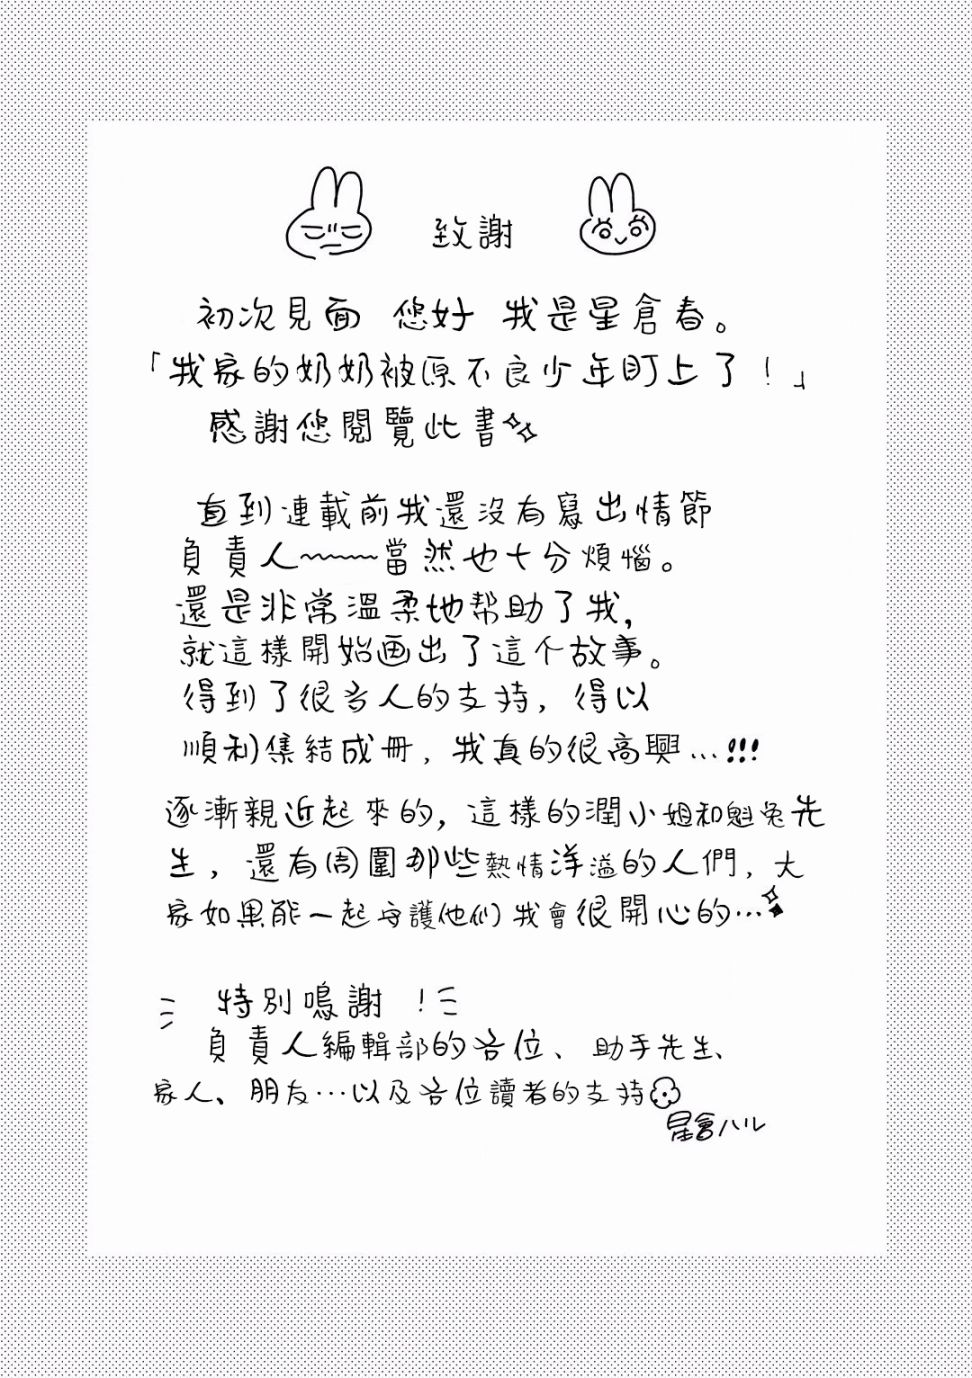 致謝
初次見面 您好 我是星倉春。
「我家的奶奶被原不良少年盯上了!」
感謝您閱覽此書
直到連載前我還沒有寫出情節
負責人~~~~當然也十分煩惱。
還是非常溫柔地帮助了我,
就這樣開始画出了這个故事。
得到了很多人的支持, 得以
順利集結成冊, 我真的很高興…!!!
逐漸親近起來的, 這樣的潤小姐和魁兔先
生, 還有周圍那些熱情洋溢的人們, 大
家如果能一起守護他们 我會很開心的…
特別鳴謝 !
負責人編輯部的各位、助手先生、
家人、朋友…以及各位讀者的支持
星倉ハル